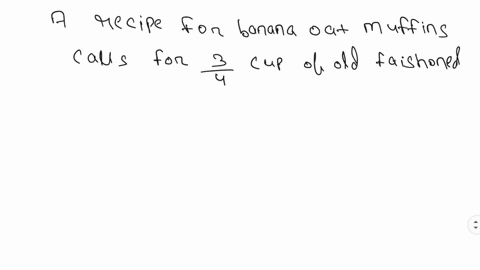 A recipe for banana oat muffins
calls for 3/4 cup of old faishoned